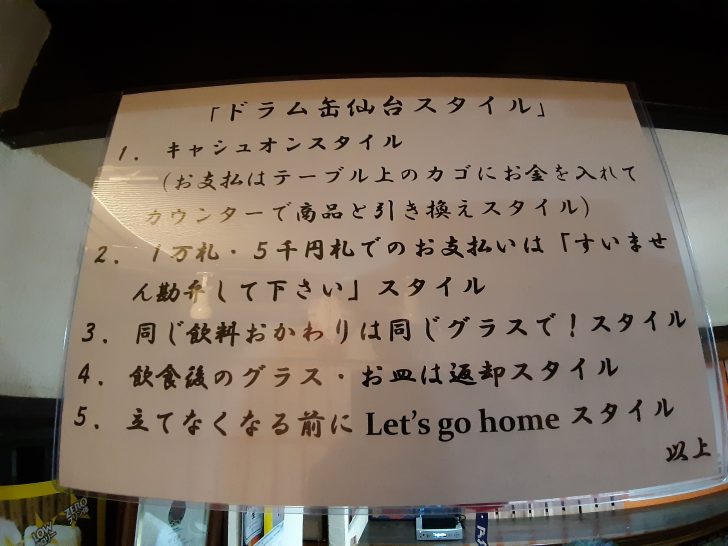 「ドラム缶仙台スタイル」
1. キャシュオンスタイル
(お支払はテーブル上のカゴにお金を入れて
カウンターで商品と引き換えスタイル)
2. 1万札・5千円札でのお支払いは「すいませ
ん勘弁して下さい」スタイル
3. 同じ飲料おかわりは同じグラスで!スタイル
4. 飲食後のグラス・お皿は返却スタイル
5. 立てなくなる前に Let's go home スタイル
以上
LOW
ZERO